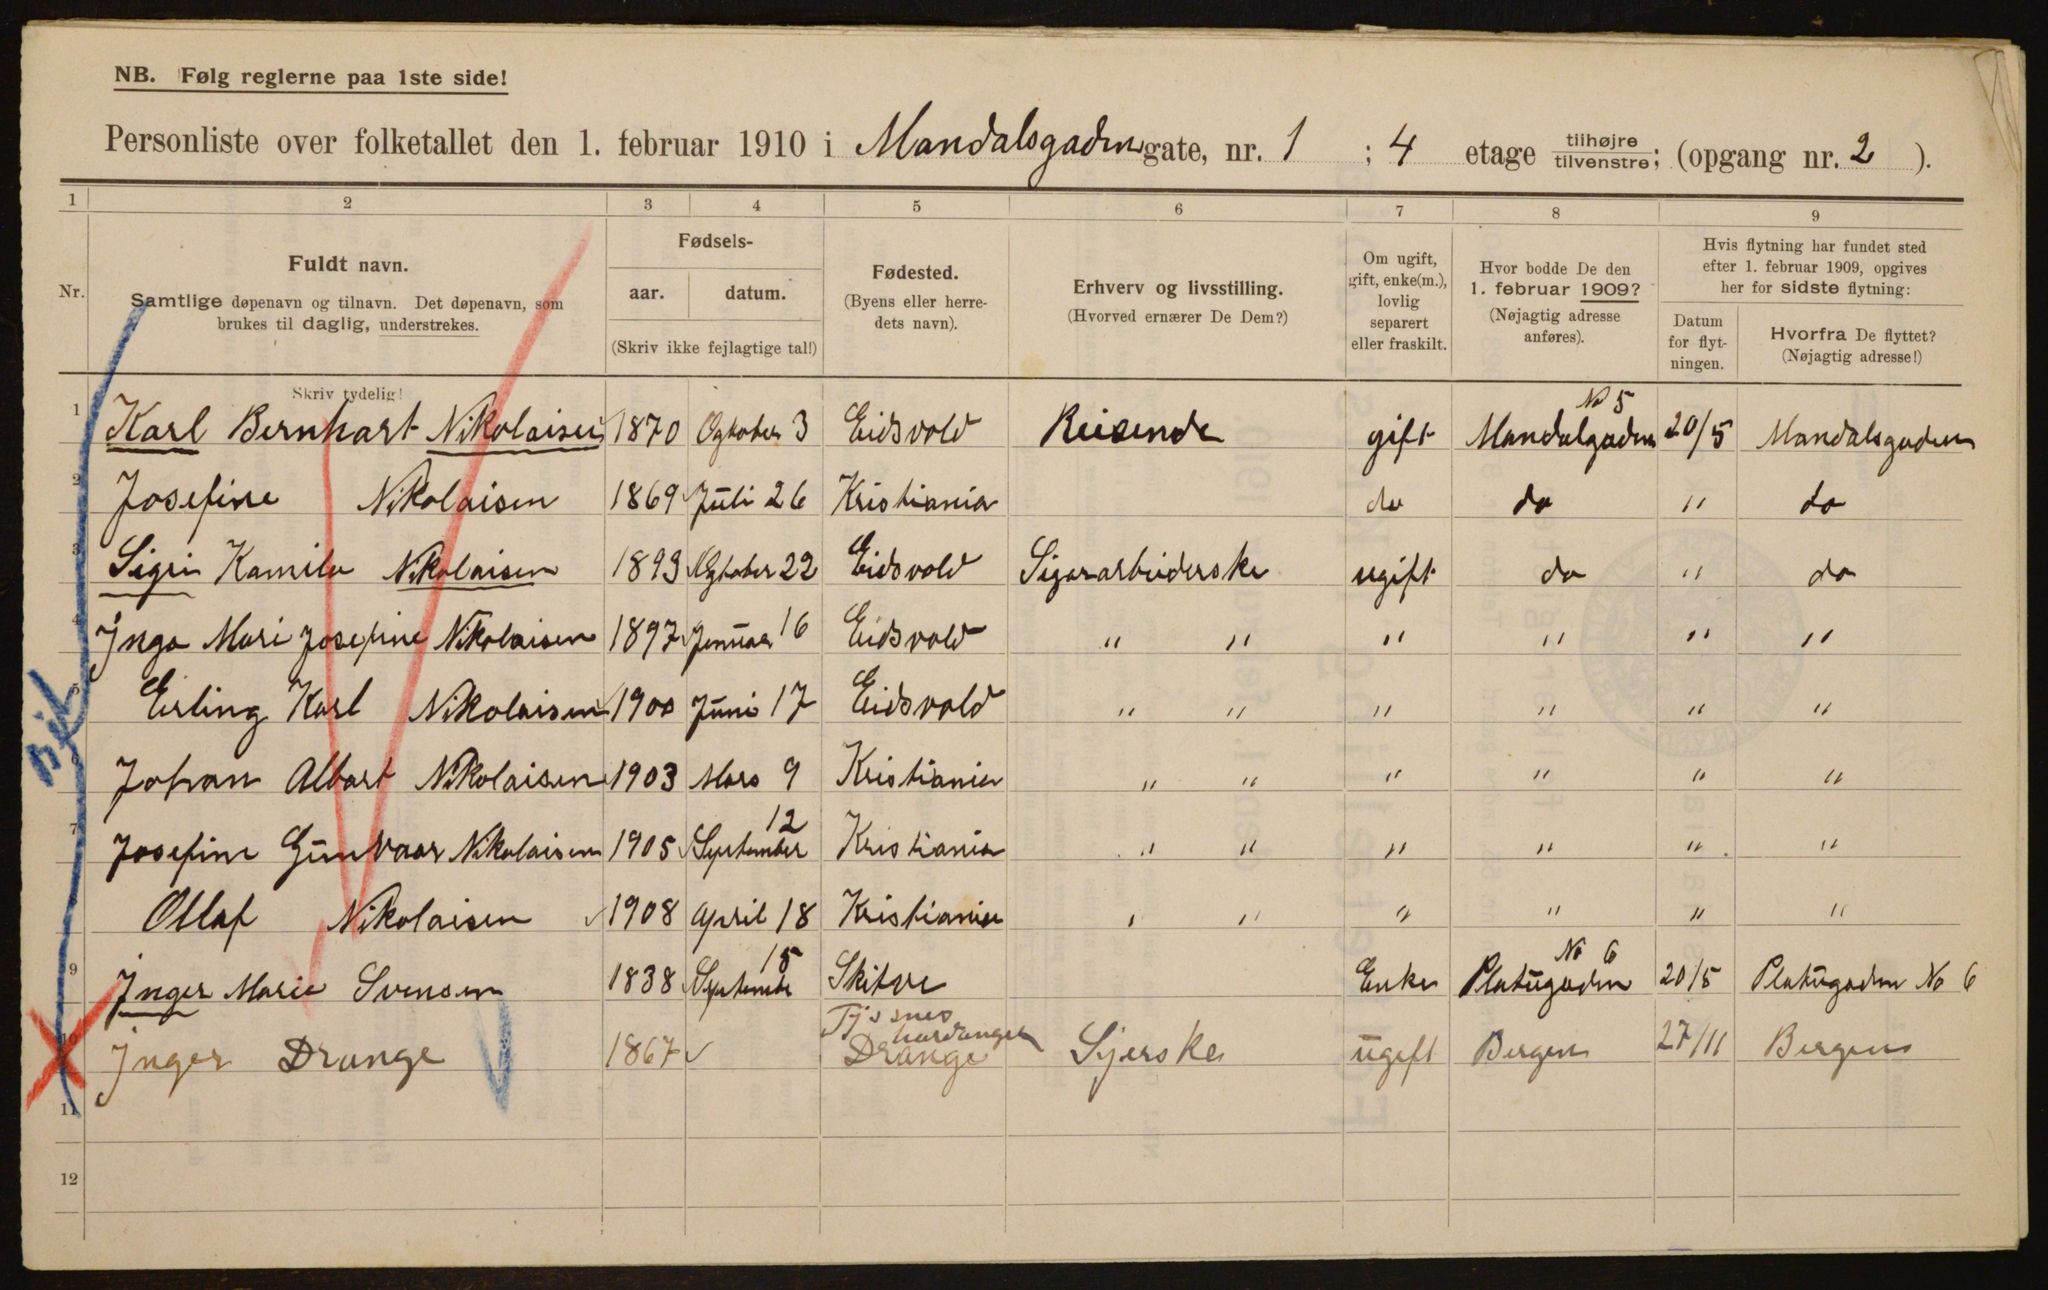 NB. Følg reglerne paa 1ste side!
Personliste over folketallet den 1. februar 1910 i Mandalsgaden gate, nr. 1 ; 4 etage tilhøjre tilvenstre; (opgang nr. 2 ).
1 2 3 4 5 6 7 8 9
Nr.
Fuldt navn.
Samtlige døpenavn og tilnavn. Det døpenavn, som
brukes til daglig, understrekes.
Skriv tydelig!
Fødsels-
aar. datum.
(Skriv ikke fejlagtige tal!)
Fødested.
(Byens eller herre-
dets navn).
Erhverv og livsstilling.
(Hvorved ernærer De Dem?)
Om ugift,
gift, enke(m.),
lovlig
separert
eller fraskilt.
Hvor bodde De den
1. februar 1909?
(Nøjagtig adresse
anføres).
Hvis flytning har fundet sted
efter 1. februar 1909, opgives
her for sidste flytning:
Datum
for flyt-
ningen.
Hvorfra De flyttet?
(Nøjagtig adresse!)
1 Karl Bernhart Nikolaisen 1870 Ogtober 3 Eidsvold Reisende gift Mandalgaden No 5 20/5 Mandalsgaden
2 Josefine Nikolaisen 1869 Juli 26 Kristiania do do " do
3 Sigri Kamila Nikolaisen 1893 Ogtober 22 Eidsvold Sigararbeiderske ugift do " do
4 Inga Mari Josefine Nikolaisen 1897 Januar 16 Eidsvold " " " " " "
5 Erling Karl Nikolaisen 1900 Juni 17 Eidsvold " " " " " "
6 Johan Albart Nikolaisen 1903 Mars 9 Kristiania " " " " " "
7 Josefine Gunvaar Nikolaisen 1905 September 12 Kristiania " " " " " "
Ollaf Nikolaisen 1908 April 18 Kristiania " " " " " "
9 Inger Marie Svensen 1838 Septembe 15 Enke Platugaden No 6 20/5 Platugaden No 6
10 Inger Drange 1867 Tysnes hardanger Drange Syerske ugift Bergen 27/11 Bergen
11
12